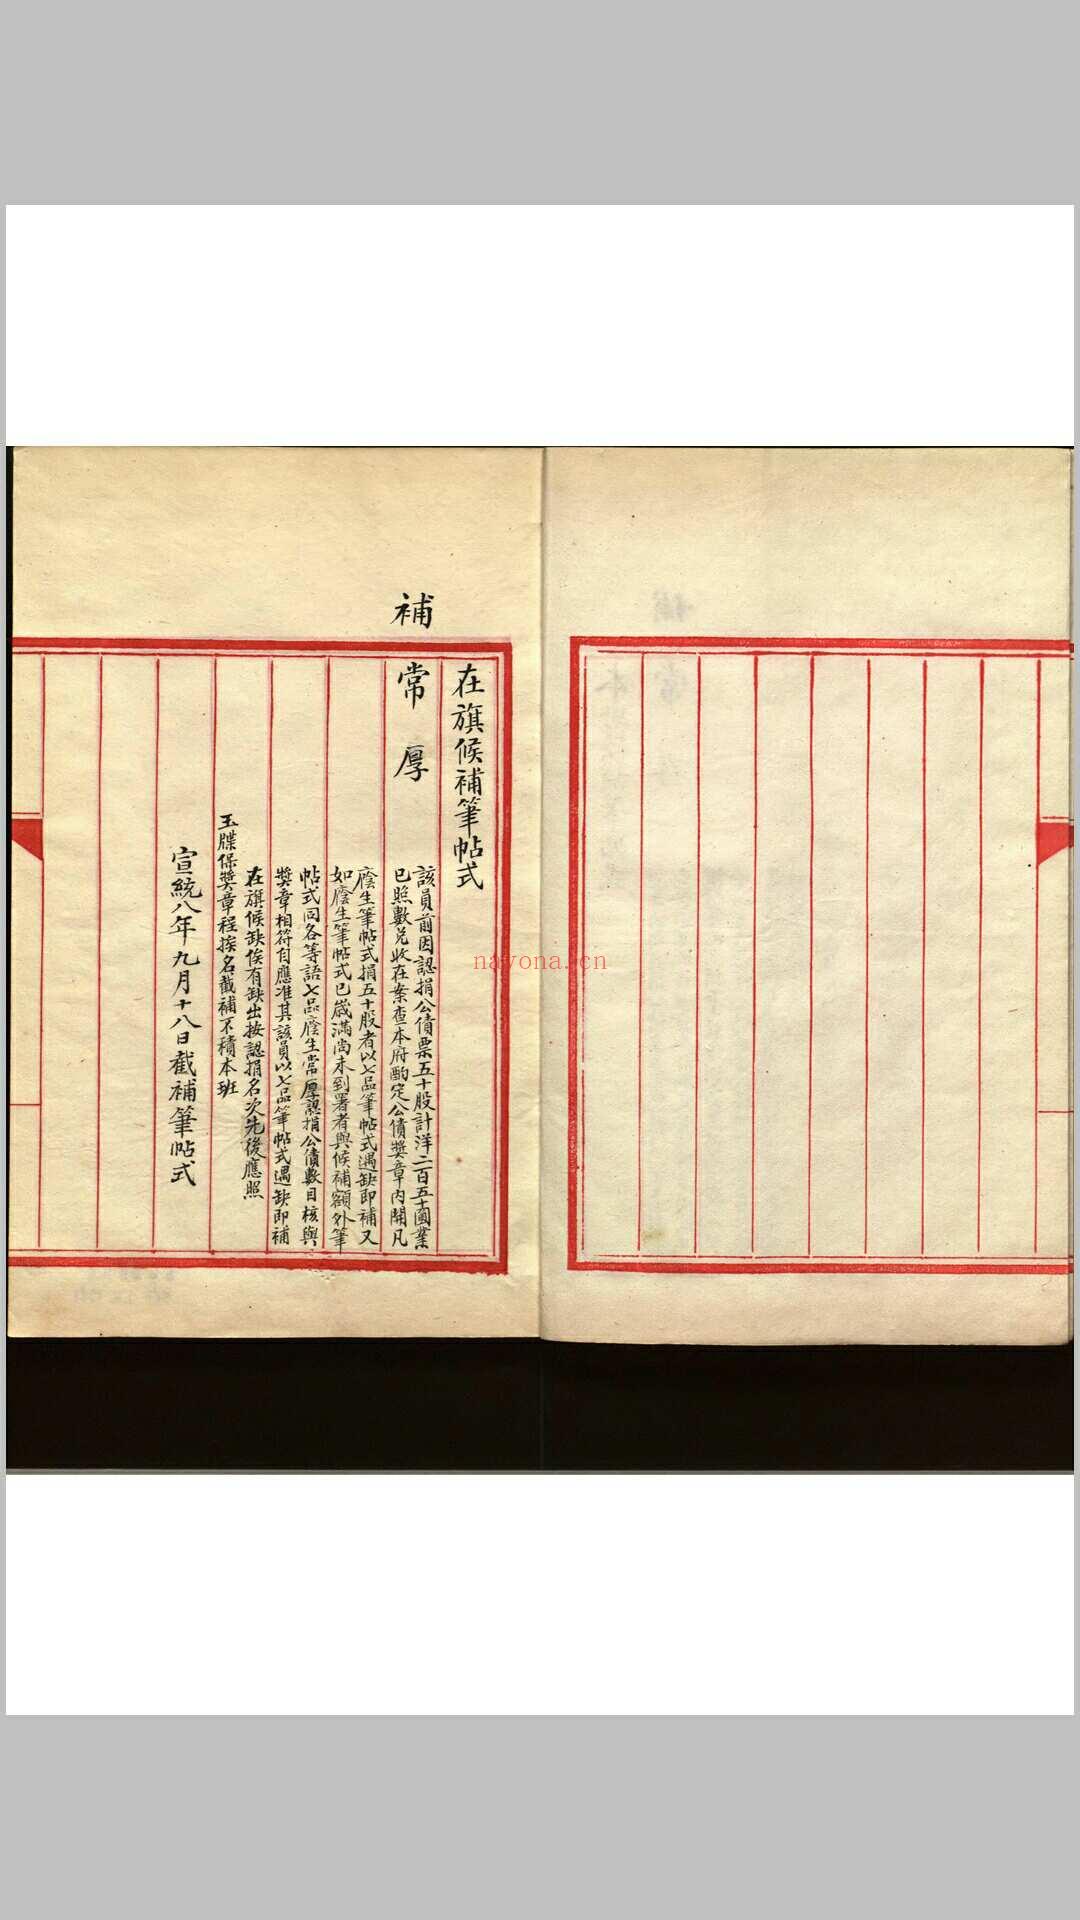 在旗候補筆帖式
補
常厚
該員前因認捐公債票五十股計洋二百五十圓業
已照數兌收在案查本府酌定公債獎章內開凡
廕生筆帖式捐五十股者以七品筆帖式遇缺即補又
如廕生筆帖式已歲滿尚未到署者與候補額外筆
帖式同各等語七品廕生常厚認捐公債數目核與
獎章相符自應准其該員以七品筆帖式遇缺即補
在旗候缺俟有缺出按認捐名次先後應照
玉牒保獎章程挨名截補不積本班
宣統八年九月十八日截補筆帖式
nayona.cn